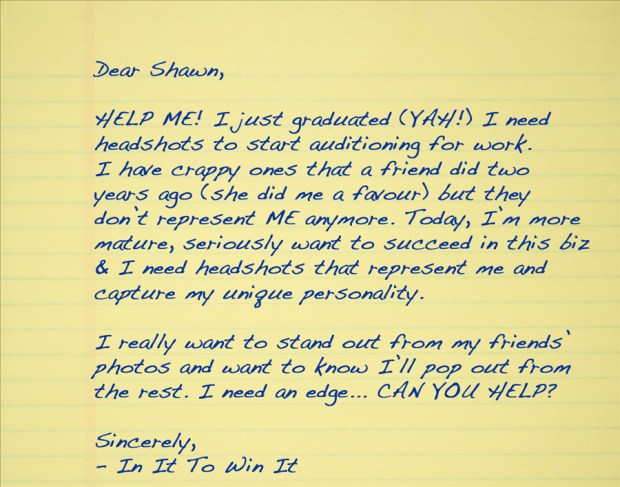 Dear Shawn,
HELP ME! I just graduated (YAH!) I need
headshots to start auditioning for work.
I have crappy ones that a friend did two
years ago (she did me a favour) but they
don't represent ME anymore. Today, I'm more
mature, seriously want to succeed in this biz
& I need headshots that represent me and
capture my unique personality.
I really want to stand out from my friends'
photos and want to know I'll pop out from
the rest. I need an edge... CAN YOU HELP?
Sincerely,
- In It To Win It